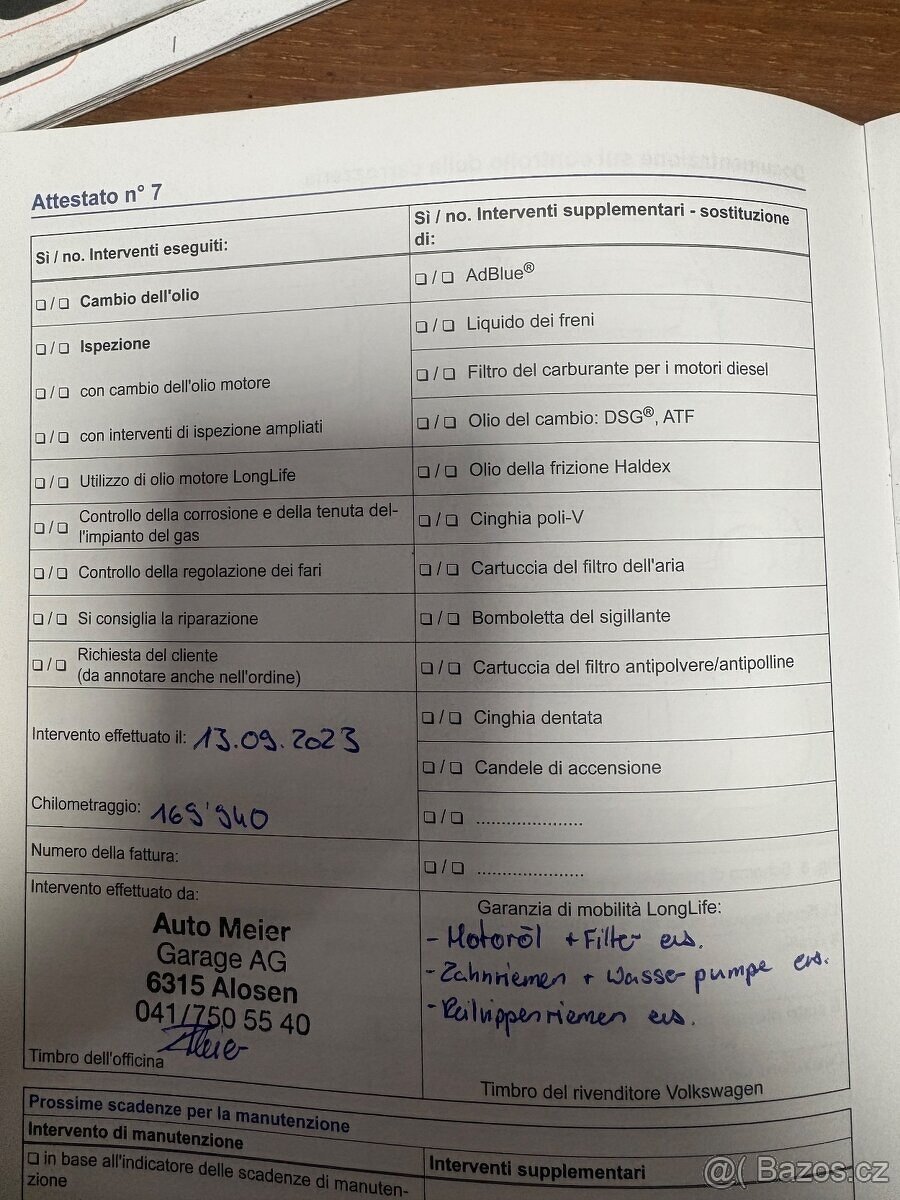 Attestato n° 7
Sì / no. Interventi eseguiti:
❏ / ❏ Cambio dell'olio
❏ / ❏ Ispezione
❏ / ❏ con cambio dell'olio motore
❏ / ❏ con interventi di ispezione ampliati
❏ / ❏ Utilizzo di olio motore LongLife
❏ / ❏ Controllo della corrosione e della tenuta del-
l'impianto del gas
❏ / ❏ Controllo della regolazione dei fari
❏ / ❏ Si consiglia la riparazione
❏ / ❏ Richiesta del cliente
(da annotare anche nell'ordine)
Intervento effettuato il: 13.09.2023
Chilometraggio: 169'940
Numero della fattura:
Intervento effettuato da:
Auto Meier
Garage AG
6315 Alosen
041/750 55 40
Timbro dell'officina
Sì / no. Interventi supplementari - sostituzione
di:
❏ / ❏ AdBlue®
❏ / ❏ Liquido dei freni
❏ / ❏ Filtro del carburante per i motori diesel
❏ / ❏ Olio del cambio: DSG®, ATF
❏ / ❏ Olio della frizione Haldex
❏ / ❏ Cinghia poli-V
❏ / ❏ Cartuccia del filtro dell'aria
❏ / ❏ Bomboletta del sigillante
❏ / ❏ Cartuccia del filtro antipolvere/antipolline
❏ / ❏ Cinghia dentata
❏ / ❏ Candele di accensione
❏ / ❏ ......................
❏ / ❏ ......................
Garanzia di mobilità LongLife:
- Motoröl + Filter ers.
- Zahnriemen + Wasserpumpe ers.
- Keilrippenriemen ers.
Timbro del rivenditore Volkswagen
Prossime scadenze per la manutenzione
Intervento di manutenzione
❏ in base all'indicatore delle scadenze di manuten-
zione
Interventi supplementari
@( Bazos.cz